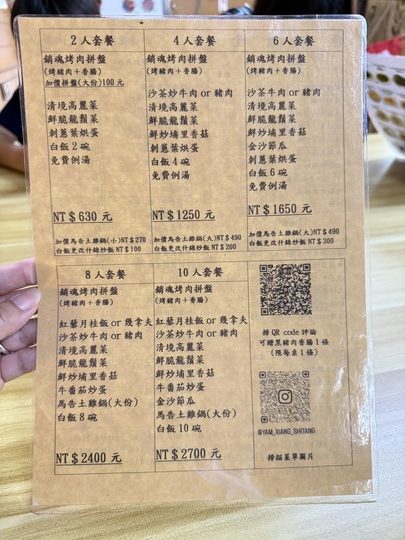 2人套餐
銷魂烤肉拼盤
(烤豬肉+香腸)
加價拼盤(大份)100元
清境高麗菜
鮮脆龍鬚菜
刺蔥葉烘蛋
白飯2碗
免費例湯
NT$630元
加價馬告土雞鍋(小)NT$270
白飯更改什錦炒飯 NT$100
4人套餐
銷魂烤肉拼盤
(烤豬肉+香腸)
沙茶炒牛肉 or 豬肉
清境高麗菜
鮮脆龍鬚菜
鮮炒埔里香菇
刺蔥葉烘蛋
白飯4碗
免費例湯
NT$1250元
加價馬告土雞鍋(大)NT$490
白飯更改什錦炒飯 NT$200
6人套餐
銷魂烤肉拼盤
(烤豬肉+香腸)
沙茶炒牛肉 or 豬肉
清境高麗菜
鮮脆龍鬚菜
鮮炒埔里香菇
金沙節瓜
刺蔥葉烘蛋
白飯6碗
免費例湯
NT$1650元
加價馬告土雞鍋(大)NT$490
白飯更改什錦炒飯 NT$300
8人套餐
銷魂烤肉拼盤
(烤豬肉+香腸)
紅藜月桂飯 or 幾拿夫
沙茶炒牛肉 or 豬肉
清境高麗菜
鮮脆龍鬚菜
鮮炒埔里香菇
牛番茄炒蛋
馬告土雞鍋(大份)
白飯8碗
NT$2400元
10人套餐
銷魂烤肉拼盤
(烤豬肉+香腸)
紅藜月桂飯 or 幾拿夫
沙茶炒牛肉 or 豬肉
清境高麗菜
鮮脆龍鬚菜
鮮炒埔里香菇
牛番茄炒蛋
金沙節瓜
馬告土雞鍋(大份)
白飯10碗
NT$2700元
掃 QR code 評論
可贈黑豬肉香腸1條
(限每桌1條)
@YAM_XIANG_SHITANG
掃描菜單圖片